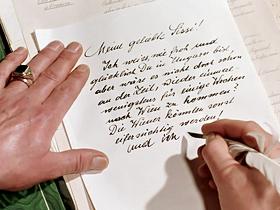 Meine geliebte Sissi!
Ich weiss, wie froh und
glücklich Du in Ungarn bist,
aber wäre es nicht doch schon
an der Zeit, wieder einmal
wenigstens für einige Wochen
nach Wien zu kommen?
Die Wiener könnten sonst
eifersüchtig werden!
und ich